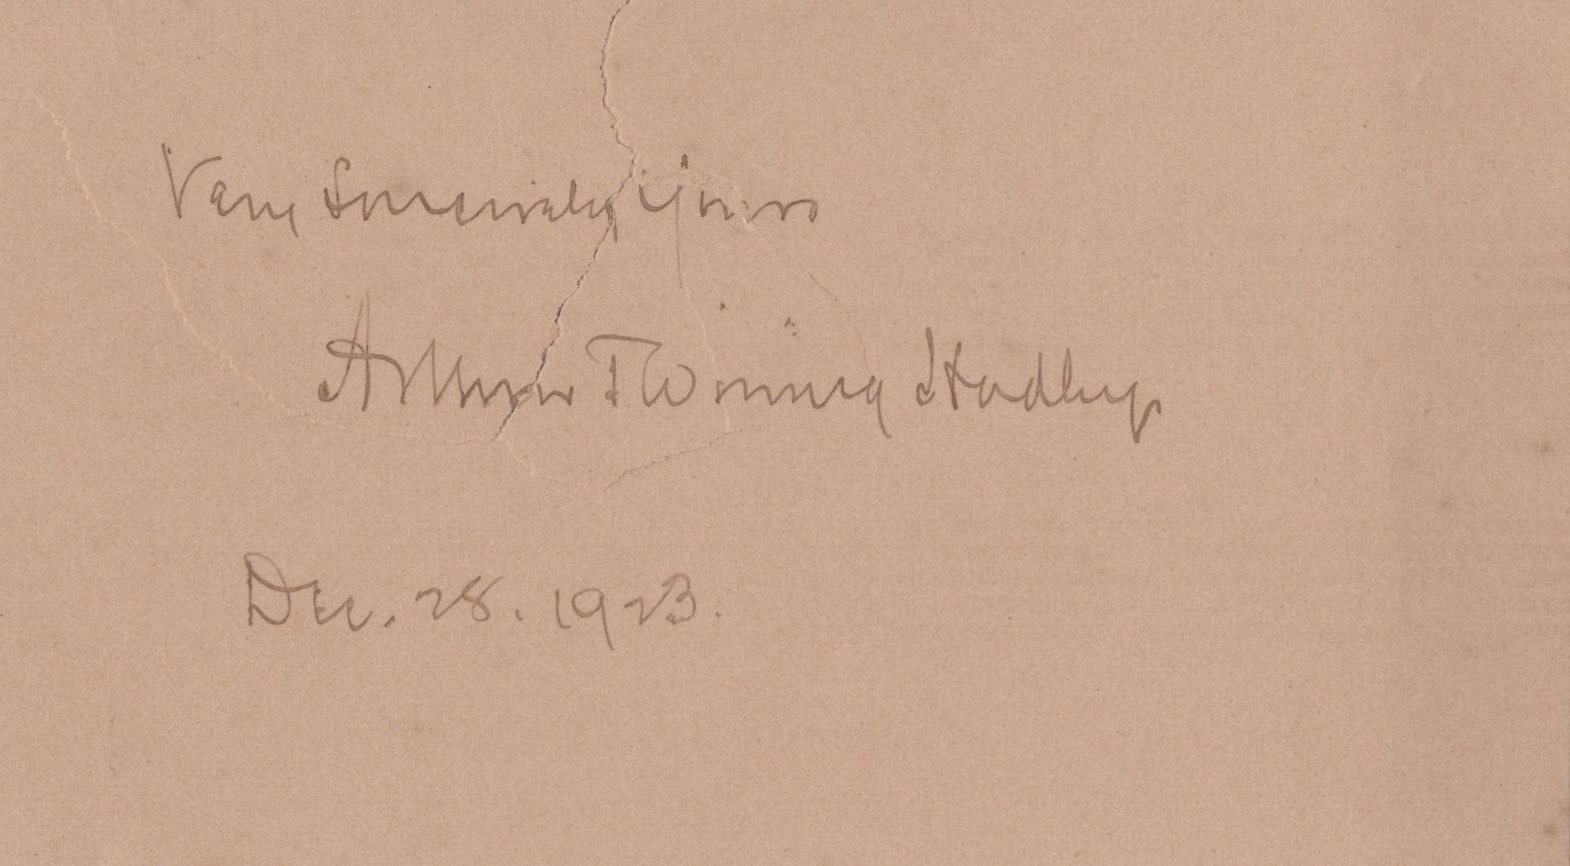 Very Sincerely Yours
Arthur Twining Hadley
Dec. 28. 1923.